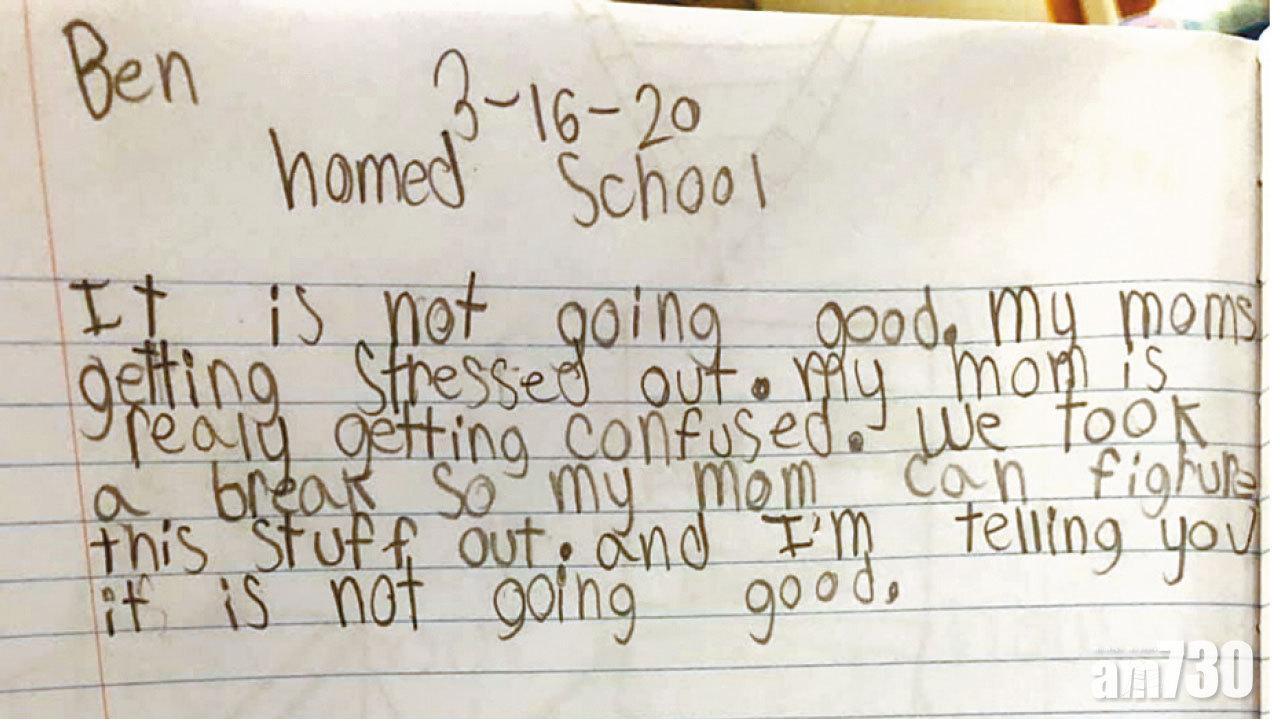 Ben
3-16-20
homed School
It is not going good. my moms
getting stressed out. My mom is
realy getting confused. We took
a break so my mom can fighure
this stuff out. and I'm telling you
it is not going good.
am730